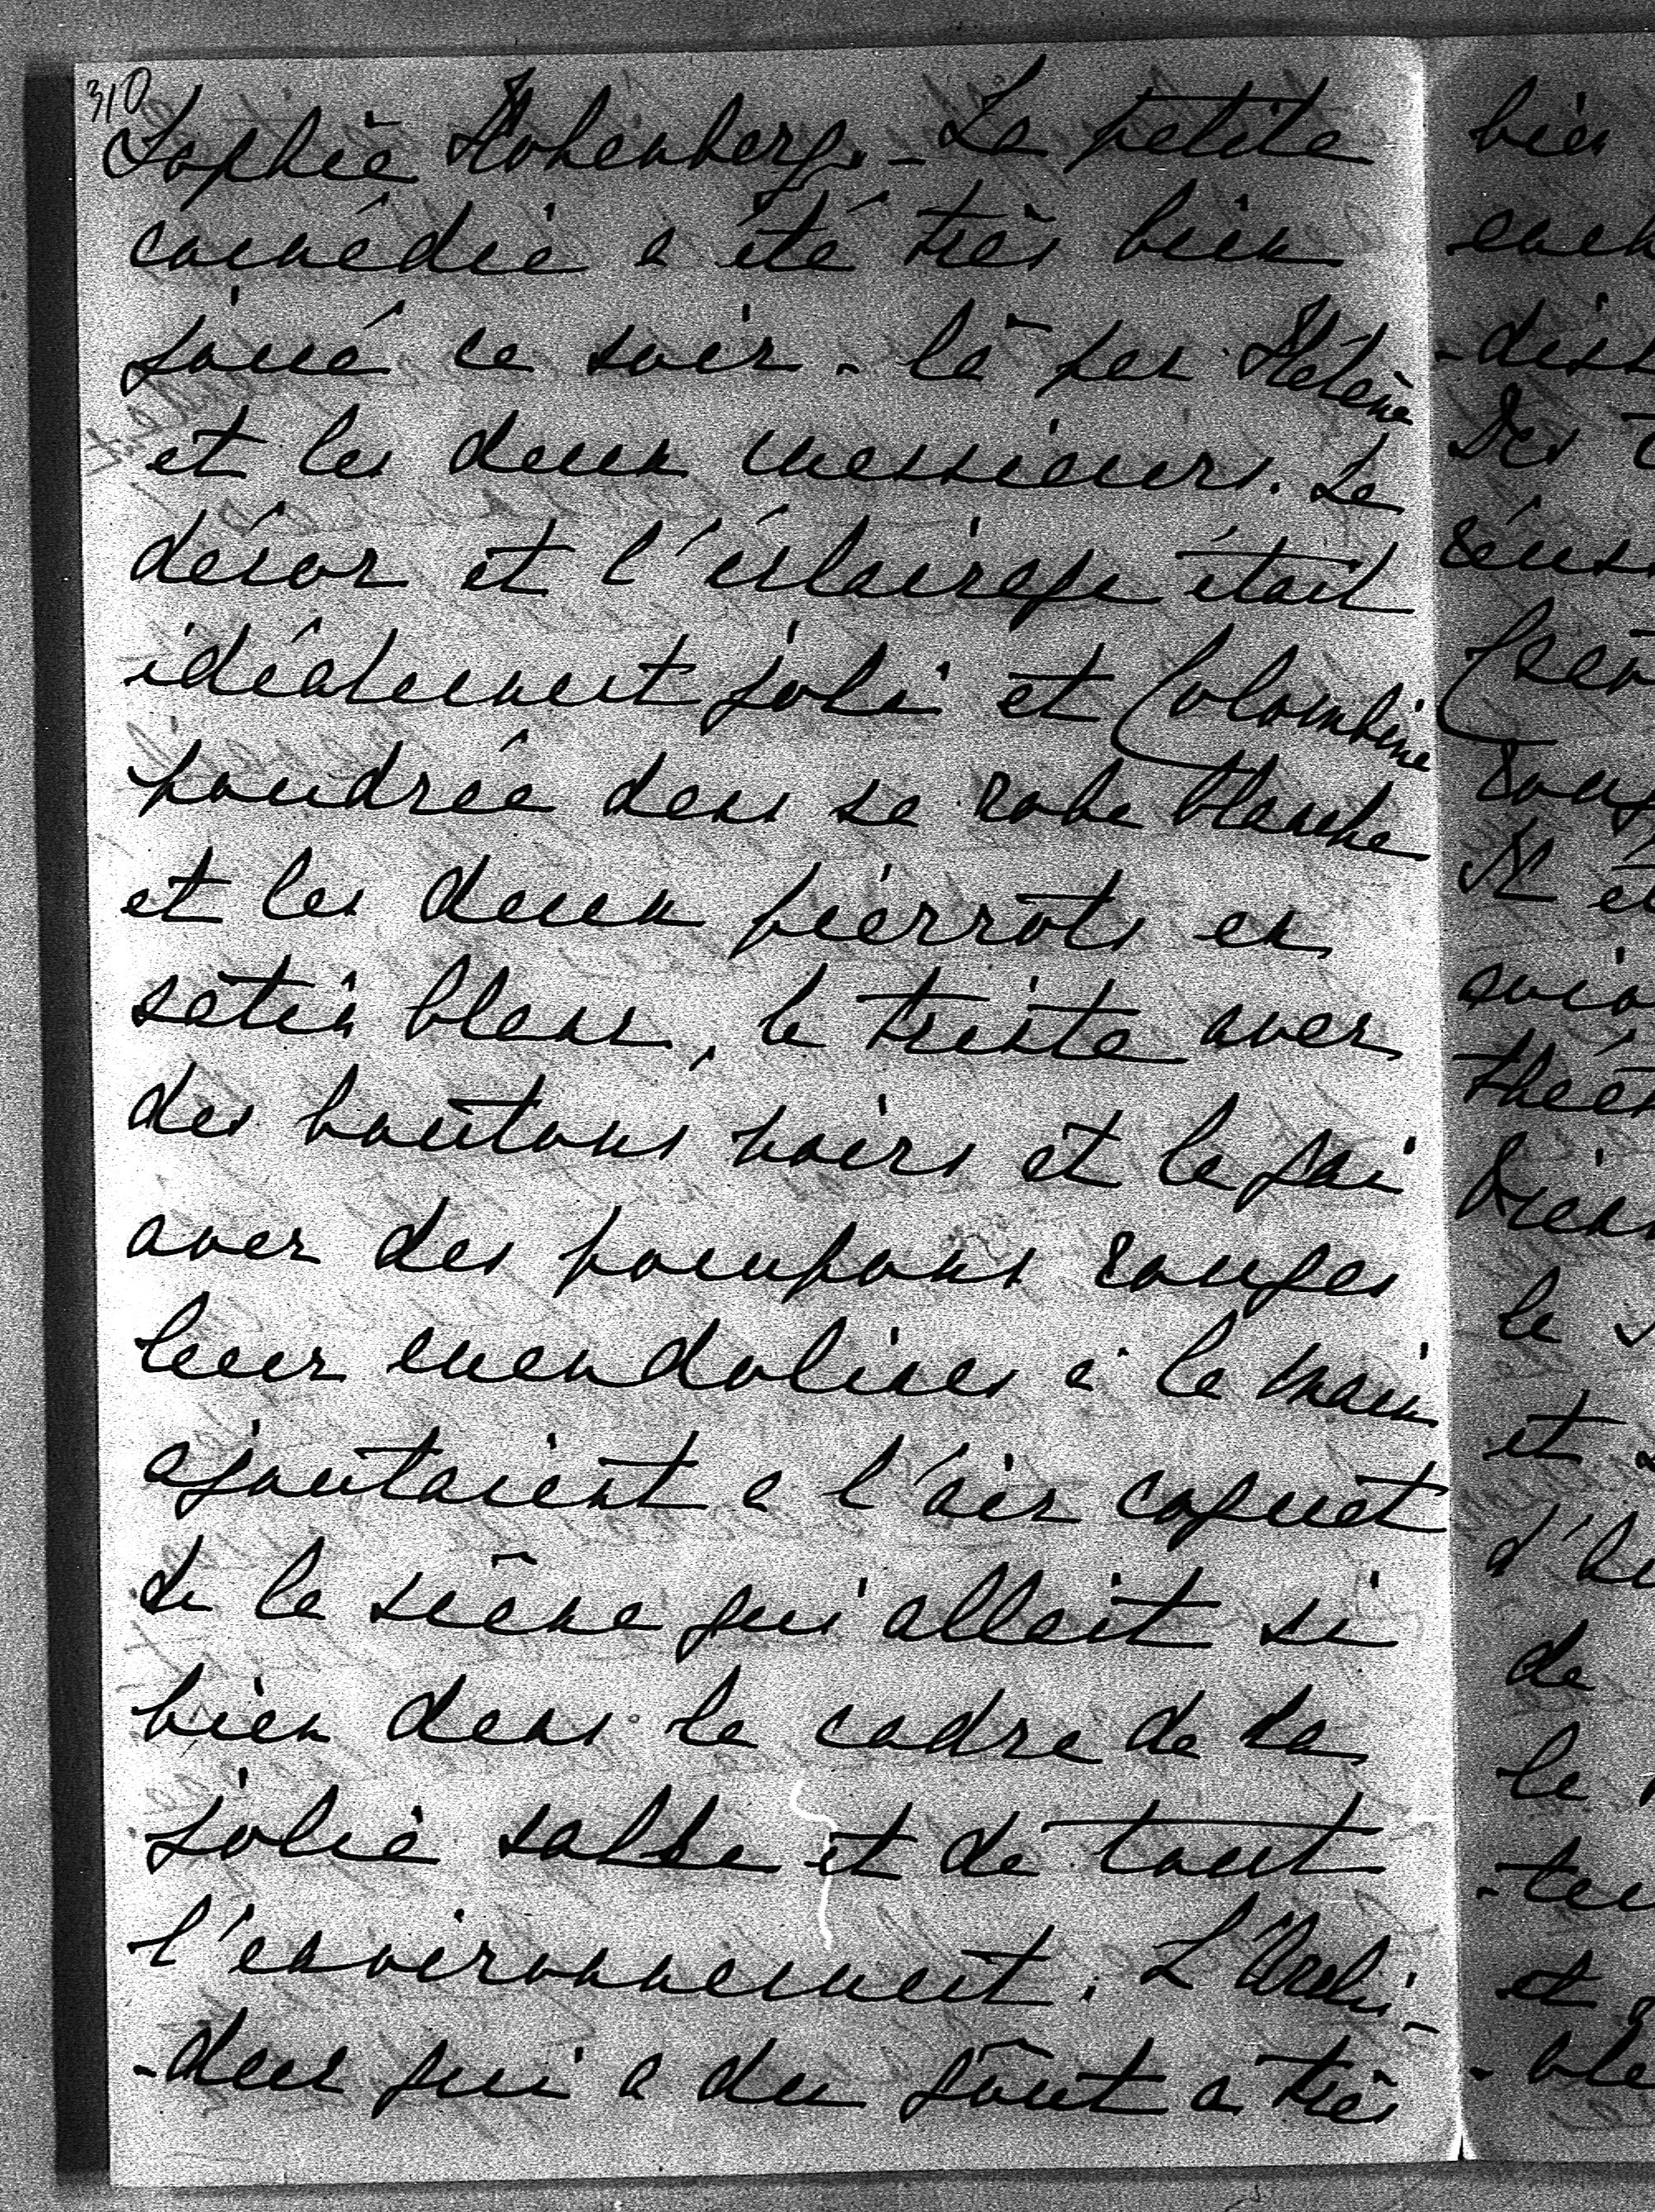 310
Sophie Hohenberg. - La petite
comédie a été très bien
joué ce soir-là par Hélène
et les deux messieurs. Le
décor et l'éclairage était
idéalement joli et Colombine
poudrée dans sa robe blanche
et les deux pierrots en
satin blanc, le triste avec
des boutons noirs et le gai
avec des pompons rouges
leur mandolines à la main
ajoutaient a l'air coquet
de la scène qui allait si
bien dans le cadre de la
jolie salle et de tout
l'environnement. L'
-deur qui a du goût a très
bien
-diss
Des
d'
de
le
et